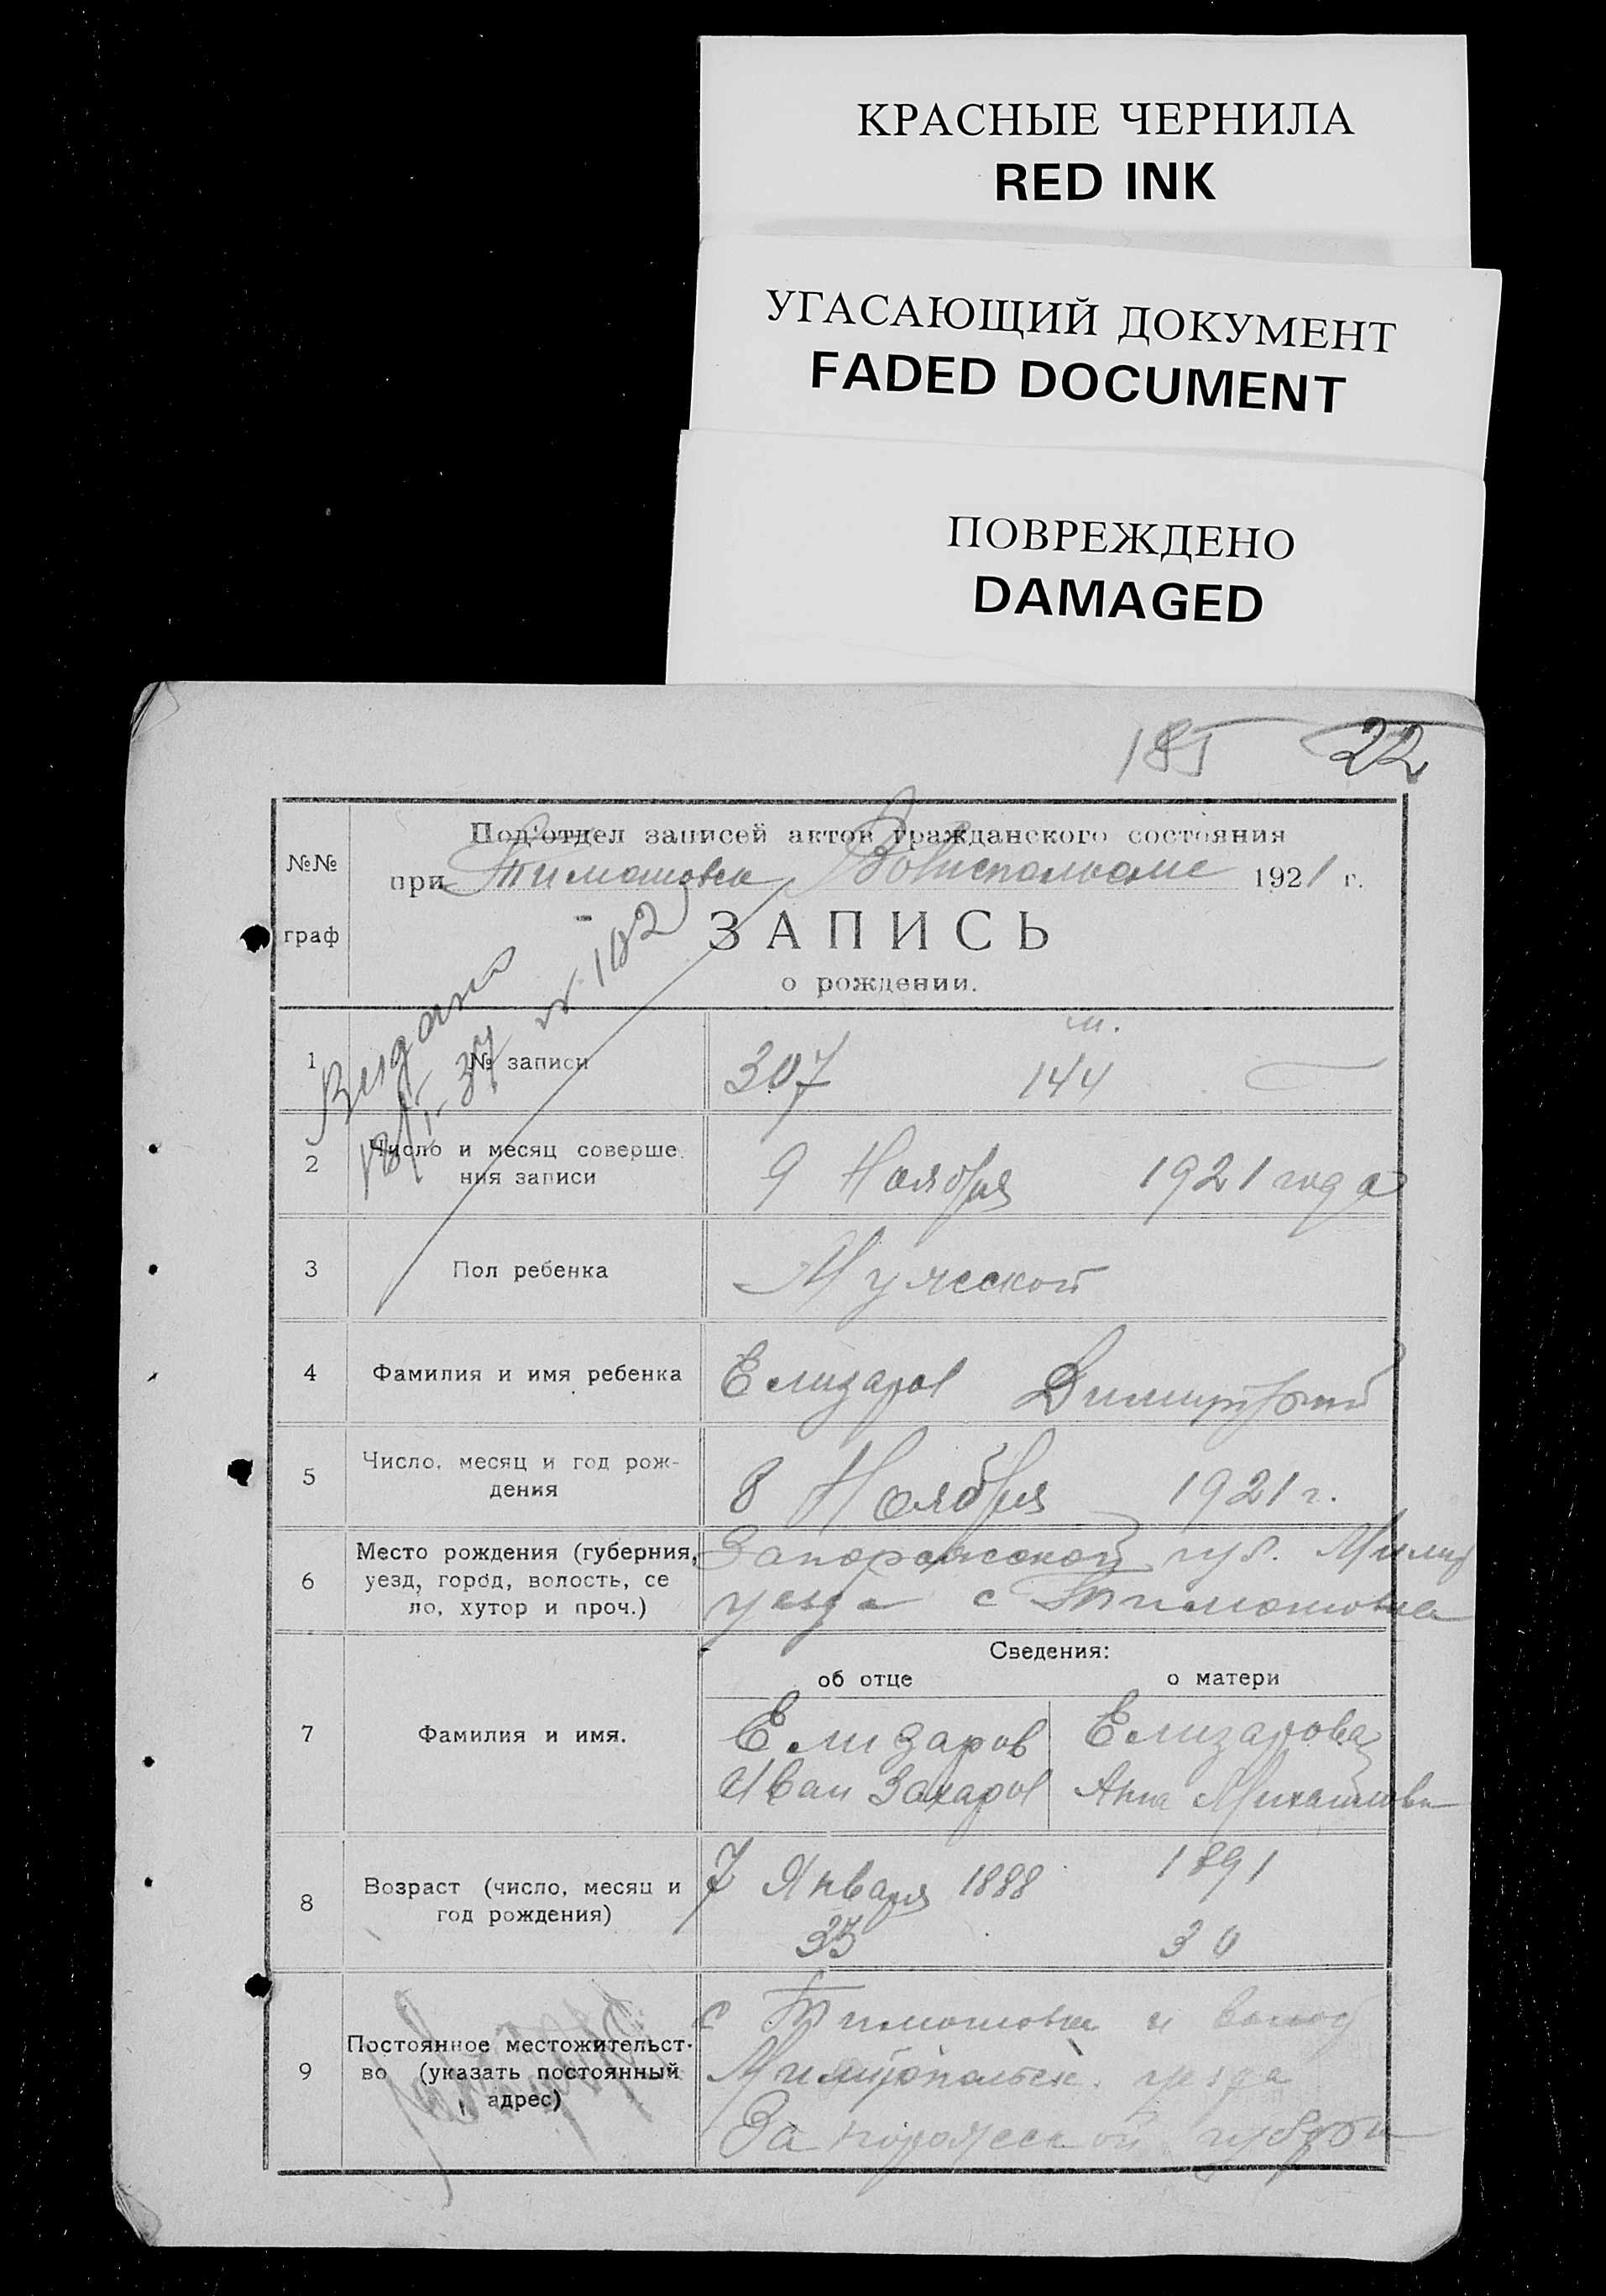 КРАСНЫЕ ЧЕРНИЛА
RED INK
УГАСАЮЩИЙ ДОКУМЕНТ
FADED DOCUMENT
ПОВРЕЖДЕНО
DAMAGED
185 22
Под'отдел записей актов гражданского состояния
при Тимошовск Волисполкоме 1921 г.
№№
граф
ЗАПИСЬ
о рождении.
37 № 102
м.
1 № записи 307 144
2 Число и месяц соверше
ния записи 9 Ноября 1921 года
3 Пол ребенка Мужской
4 Фамилия и имя ребенка Елизаров Димитрий
5 Число, месяц и год рож-
дения 8 Ноября 1921 г.
6 Место рождения (губерния, Запорожской губ. Мелит
уезд, город, волость, се
ло, хутор и проч.) уезда с Тимошовка
Сведения:
об отце о матери
7 Фамилия и имя. Елизаров Елизарова
Иван Захаров Анна Михайловн
8 Возраст (число, месяц и
год рождения) 7 Января 1888 1891
33 30
9 Постоянное местожительст-
во (указать постоянный
адрес)
с Тимошовка и волос
Мелитопольск. уезда
Запорожской губерн